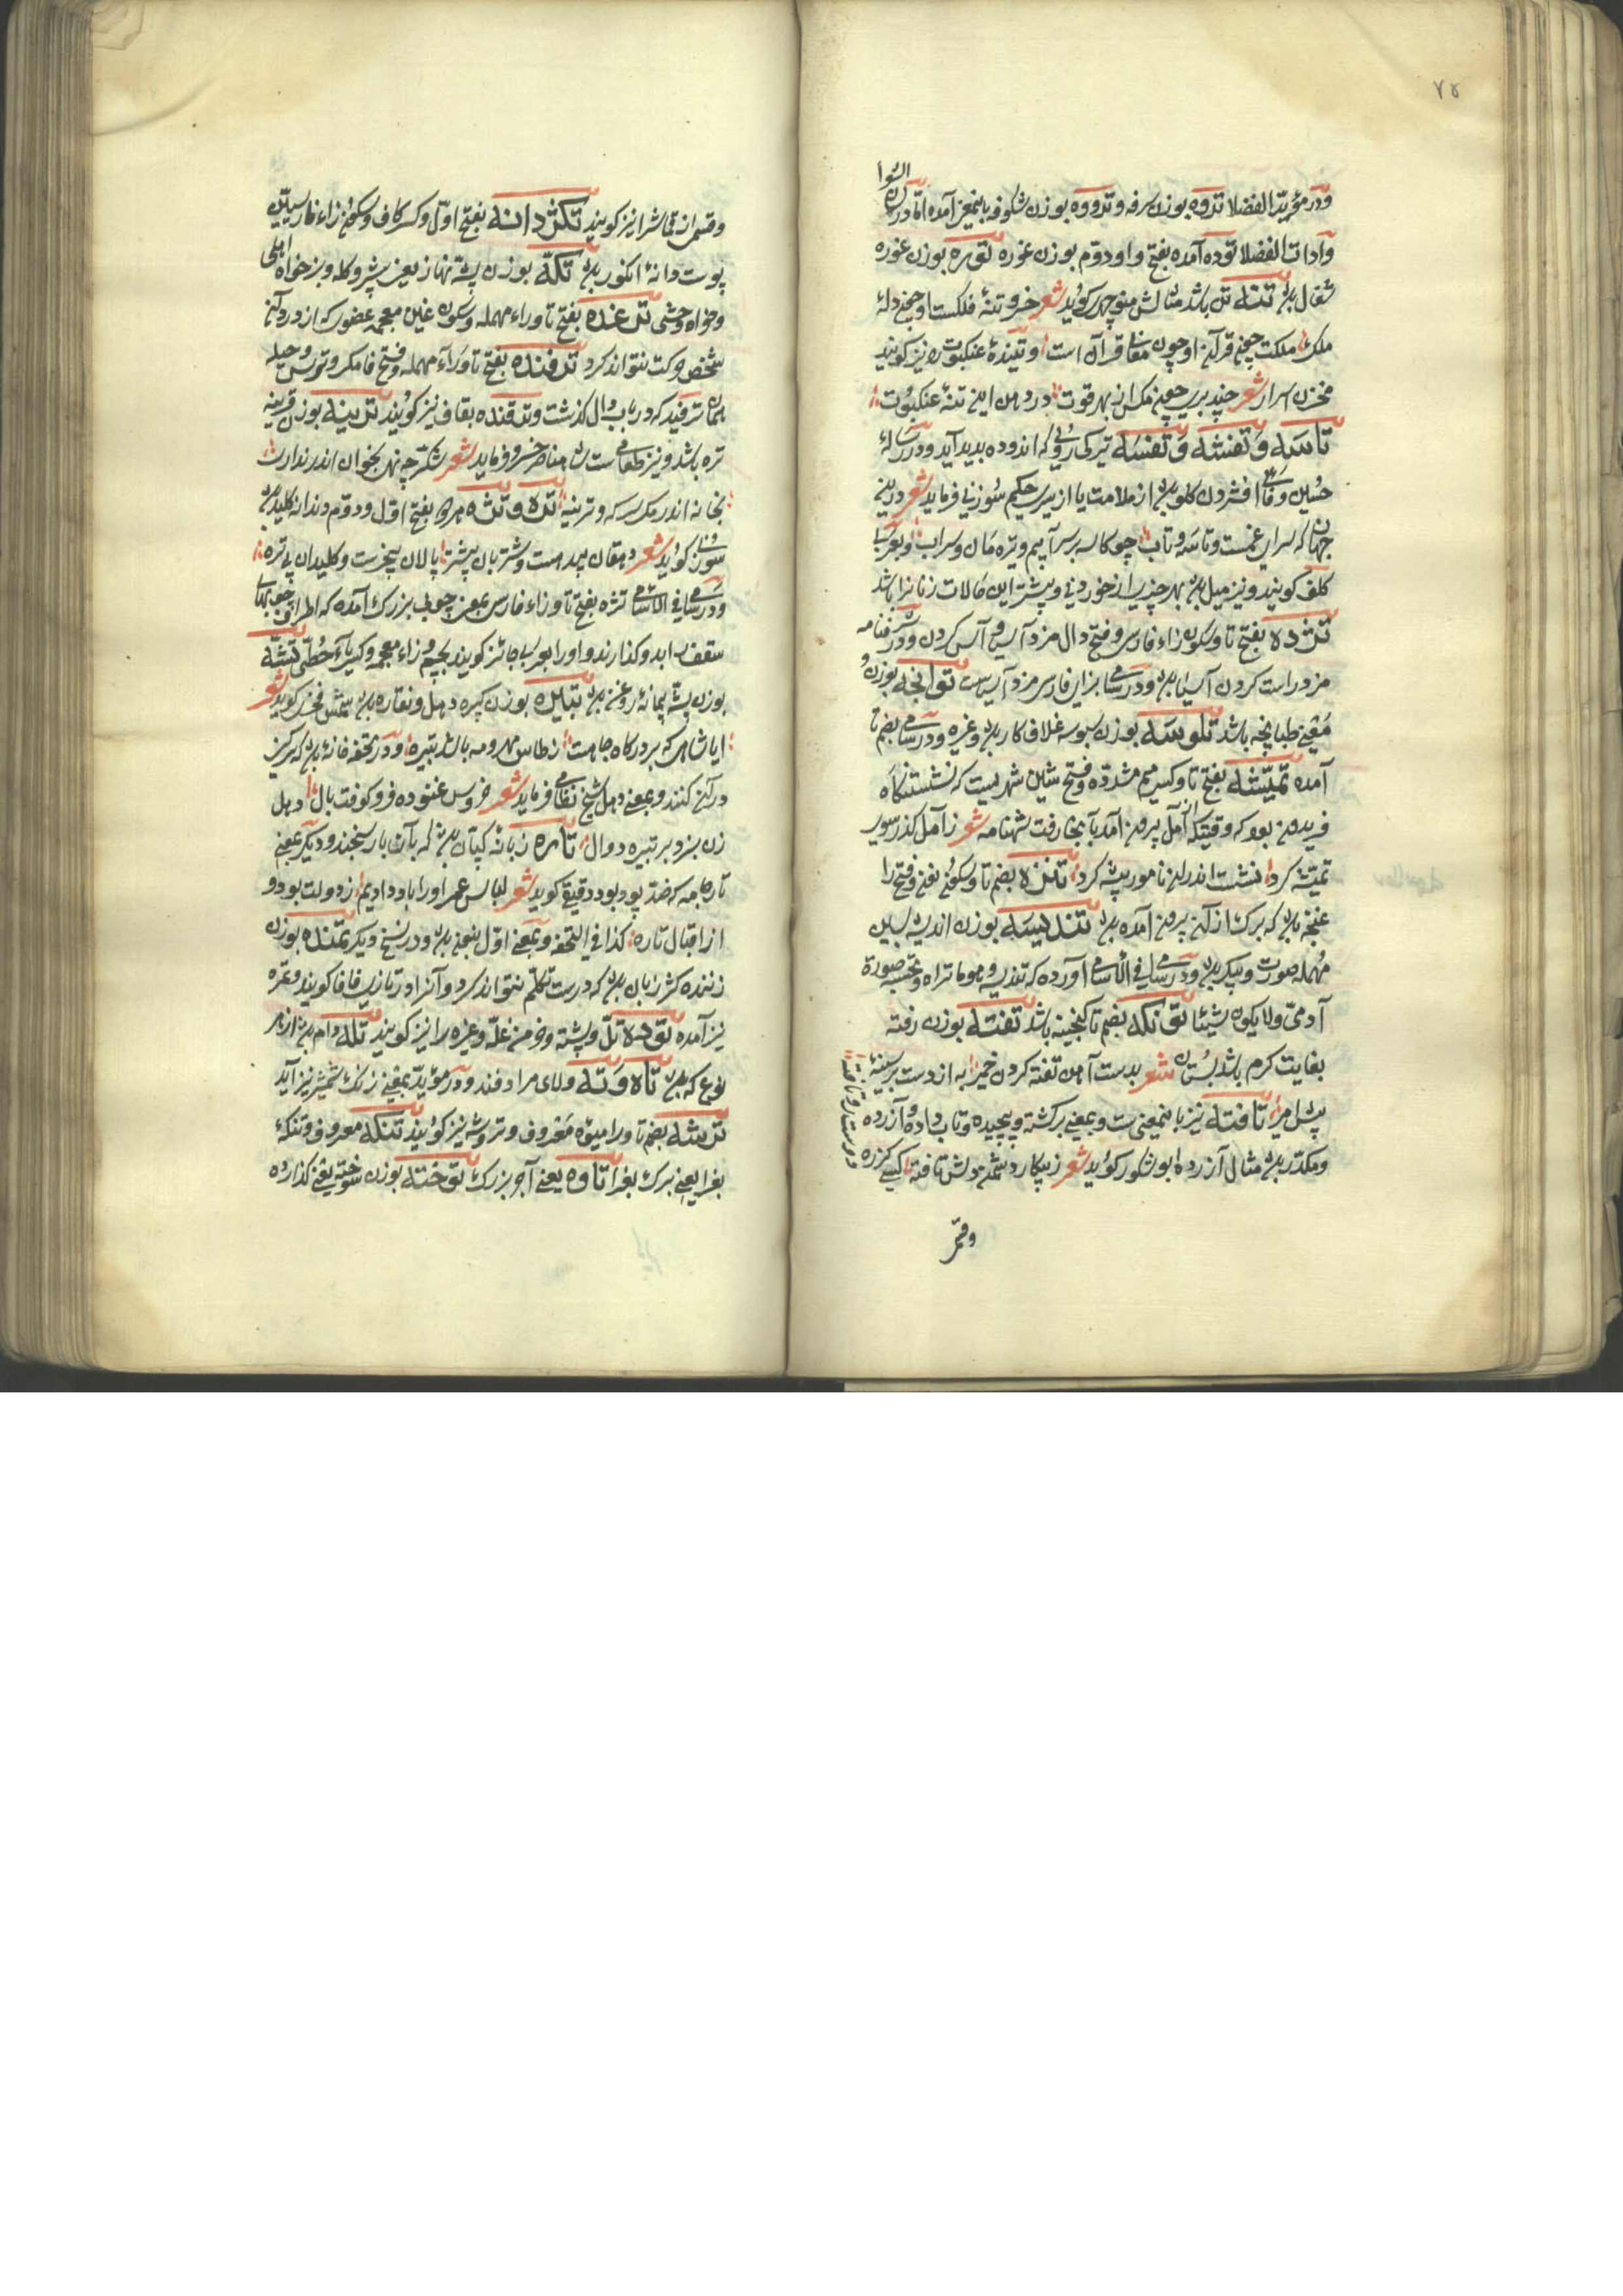 ٧٤
ودر مؤید الفضلا تدوه بوزن سرفه وتدووه بوزن شکوفه باینمعنی آمده اما در
وادات الفضلا توده آمده بفتح واو دوم بوزن غوره توره بوزن غوره
شغال بود تنه تن باشد مثالش منوچهری گوید شعر خرد تنهٔ فلکست او چون دلهٔ
ملک ملکت چون قرآن او چون معانی قرآن است وتنندهٔ عنکبوت را نیز گویند
مخزن اسرار شعر چند پری چون مگس از بهر قوت در دهن این تنهٔ عنکبوت
تاسه وتفشه وتفسه تیرگی روی که از دوده پدید آید ودر رسالهٔ
حسین وفائی افشردن گلو بود از ملامت یا از سیری حکیم سوزنی فرماید شعر درین
جهان که سرای غمست وتاسه وتاب چو کاسه بر سر آبیم وتیره مان وسراب وبعربی
کلف گویند ونیز میل بود بهر چیزی از خوردنی وبیشتر این حالات زنانرا باشد
تژده بفتح تا وسکون زاء فارسی وفتح دال مزد آسیا وآس کردن ودر شرفنامه
مزد راست کردن آسیا بود ودر سامی بزای فارسی مزد آسیاست توانجه بوزن و
معنی طبانجه باشد تلوسه بوزن سبوسه غلاف کارد بود وغیره ودر سامی بضم تا
آمده تمیشه بفتح تا وکسر میم مشدده وفتح شین شهریست که نشستنگاه
فریدون بود که وقتیکه از آمل بیرون آمد بآنجا رفت شهنامه شعر ز آمل گذر سوی
تمیشه کرد نشست اندران نامور بیشه کرد تنزه بضم تا وسکون نون وفتح زا
غنچه بود که برگ از آن بیرون آمده بود تندیسه بوزن اندیشه بسین
مهمله صورت وپیکر بود ودر سامی فی الأسامی آورده که تندیسه هو ما تراه وتحسبه صورة
آدمی ولا یکون شیئا توانکه بضم تا گنجینه باشد تفته بوزن رفته
بغایت گرم باشد بستان شعر بدست آهن تفته کردن خمیر به از دست بر سینهٔ
پیش امیر تافته نیز باینمعنی است وبمعنی برگشته وپیچیده وتاب داده وآزرده
ومکدر بود مثال آزرده ابو شکور گوید شعر ز بیکار دشمن دلش تافته
وقتی
وقسمی از قماش را نیز گویند تکژدانه بفتح اول وکسر کاف وسکون زاء فارسیین
پوست دانهٔ انگور بود تکه بوزن پشه نهاز یعنی پیشرو گله وبز خواه اهلی
وخواه وحشی ترغده بفتح تا وراء مهمله وسکون غین معجمه عضوی که از درد آن
شخص حرکت نتواند کرد ترفنده بفتح تا وراء مهمله وفتح فا مکر وتزویر وحیله
همان ترفند که در باب دال گذشت وترقنده بقاف نیز گویند ترینه بوزن قرینه
تره باشد ونیز طعامی است ناصر خسرو فرماید شعر شکر چه نهی بخوان اندر ندارت
بخانه اندر مگر سرکه وترینه تزه وتژه هردو بفتح اول ودوم دندانه کلید بود
سوزنی گوید شعر دهقان بی ده است وشتربان بی شتر پالان بی خر است وکلیدان بی تزه
ودر سامی فی الاسامی تژه بفتح تا وزاء فارسی بمعنی چوبی بزرگ آمده که اطراف چوبهای
سقف را بدو گذارند واورا بعربی جائز گویند بجیم وزاء معجمه وکسر یاء حطی تشه
بوزن پشه پیمانهٔ روغن بود تبیره بوزن کبیره دهل ونقاره بود شمس فخری گوید شعر
ایا شاهی که بر درگاه جاهت ز طاس مهر ومه باشد تبیره ودر تحفه خانه بود که گریز
در آن کنند وبمعنی دهل شیخ نظامی فرماید شعر خروس غنوده فرو کوفت بال دهل
زن بزد بر تبیره دوال تاره زبانه کپان بود که بآن بار سنجند ودیگر بمعنی
تار جامه که ضد پود بود دقیقی گوید شعر لباس عمر اورا باد دایم ز دولت پود و
از اقبال تاره کذا فی التحفه وبمعنی اول بنون بود ودر نسخ دیگر تمنده بوزن
زننده کژ زبان بود که درست تکلم نتواند کرد وآنرا در تازی فافا گویند وغره
نیز آمده توده تل وپشته وخرمن غله وغیره را نیز گویند تله دام بود از هر
نوع که بود تاه وته ولای مرادفند ودر مؤید بمعنی زنگ شمشیر نیز آید
ترشه بضم تا ورا میوهٔ معروف وتروشه نیز گویند تنکه معروف وتنکهٔ
بغرا یعنی برگ بغرا تاوه یعنی آجر بزرگ توخته بوزن سوخته یعنی گذارده